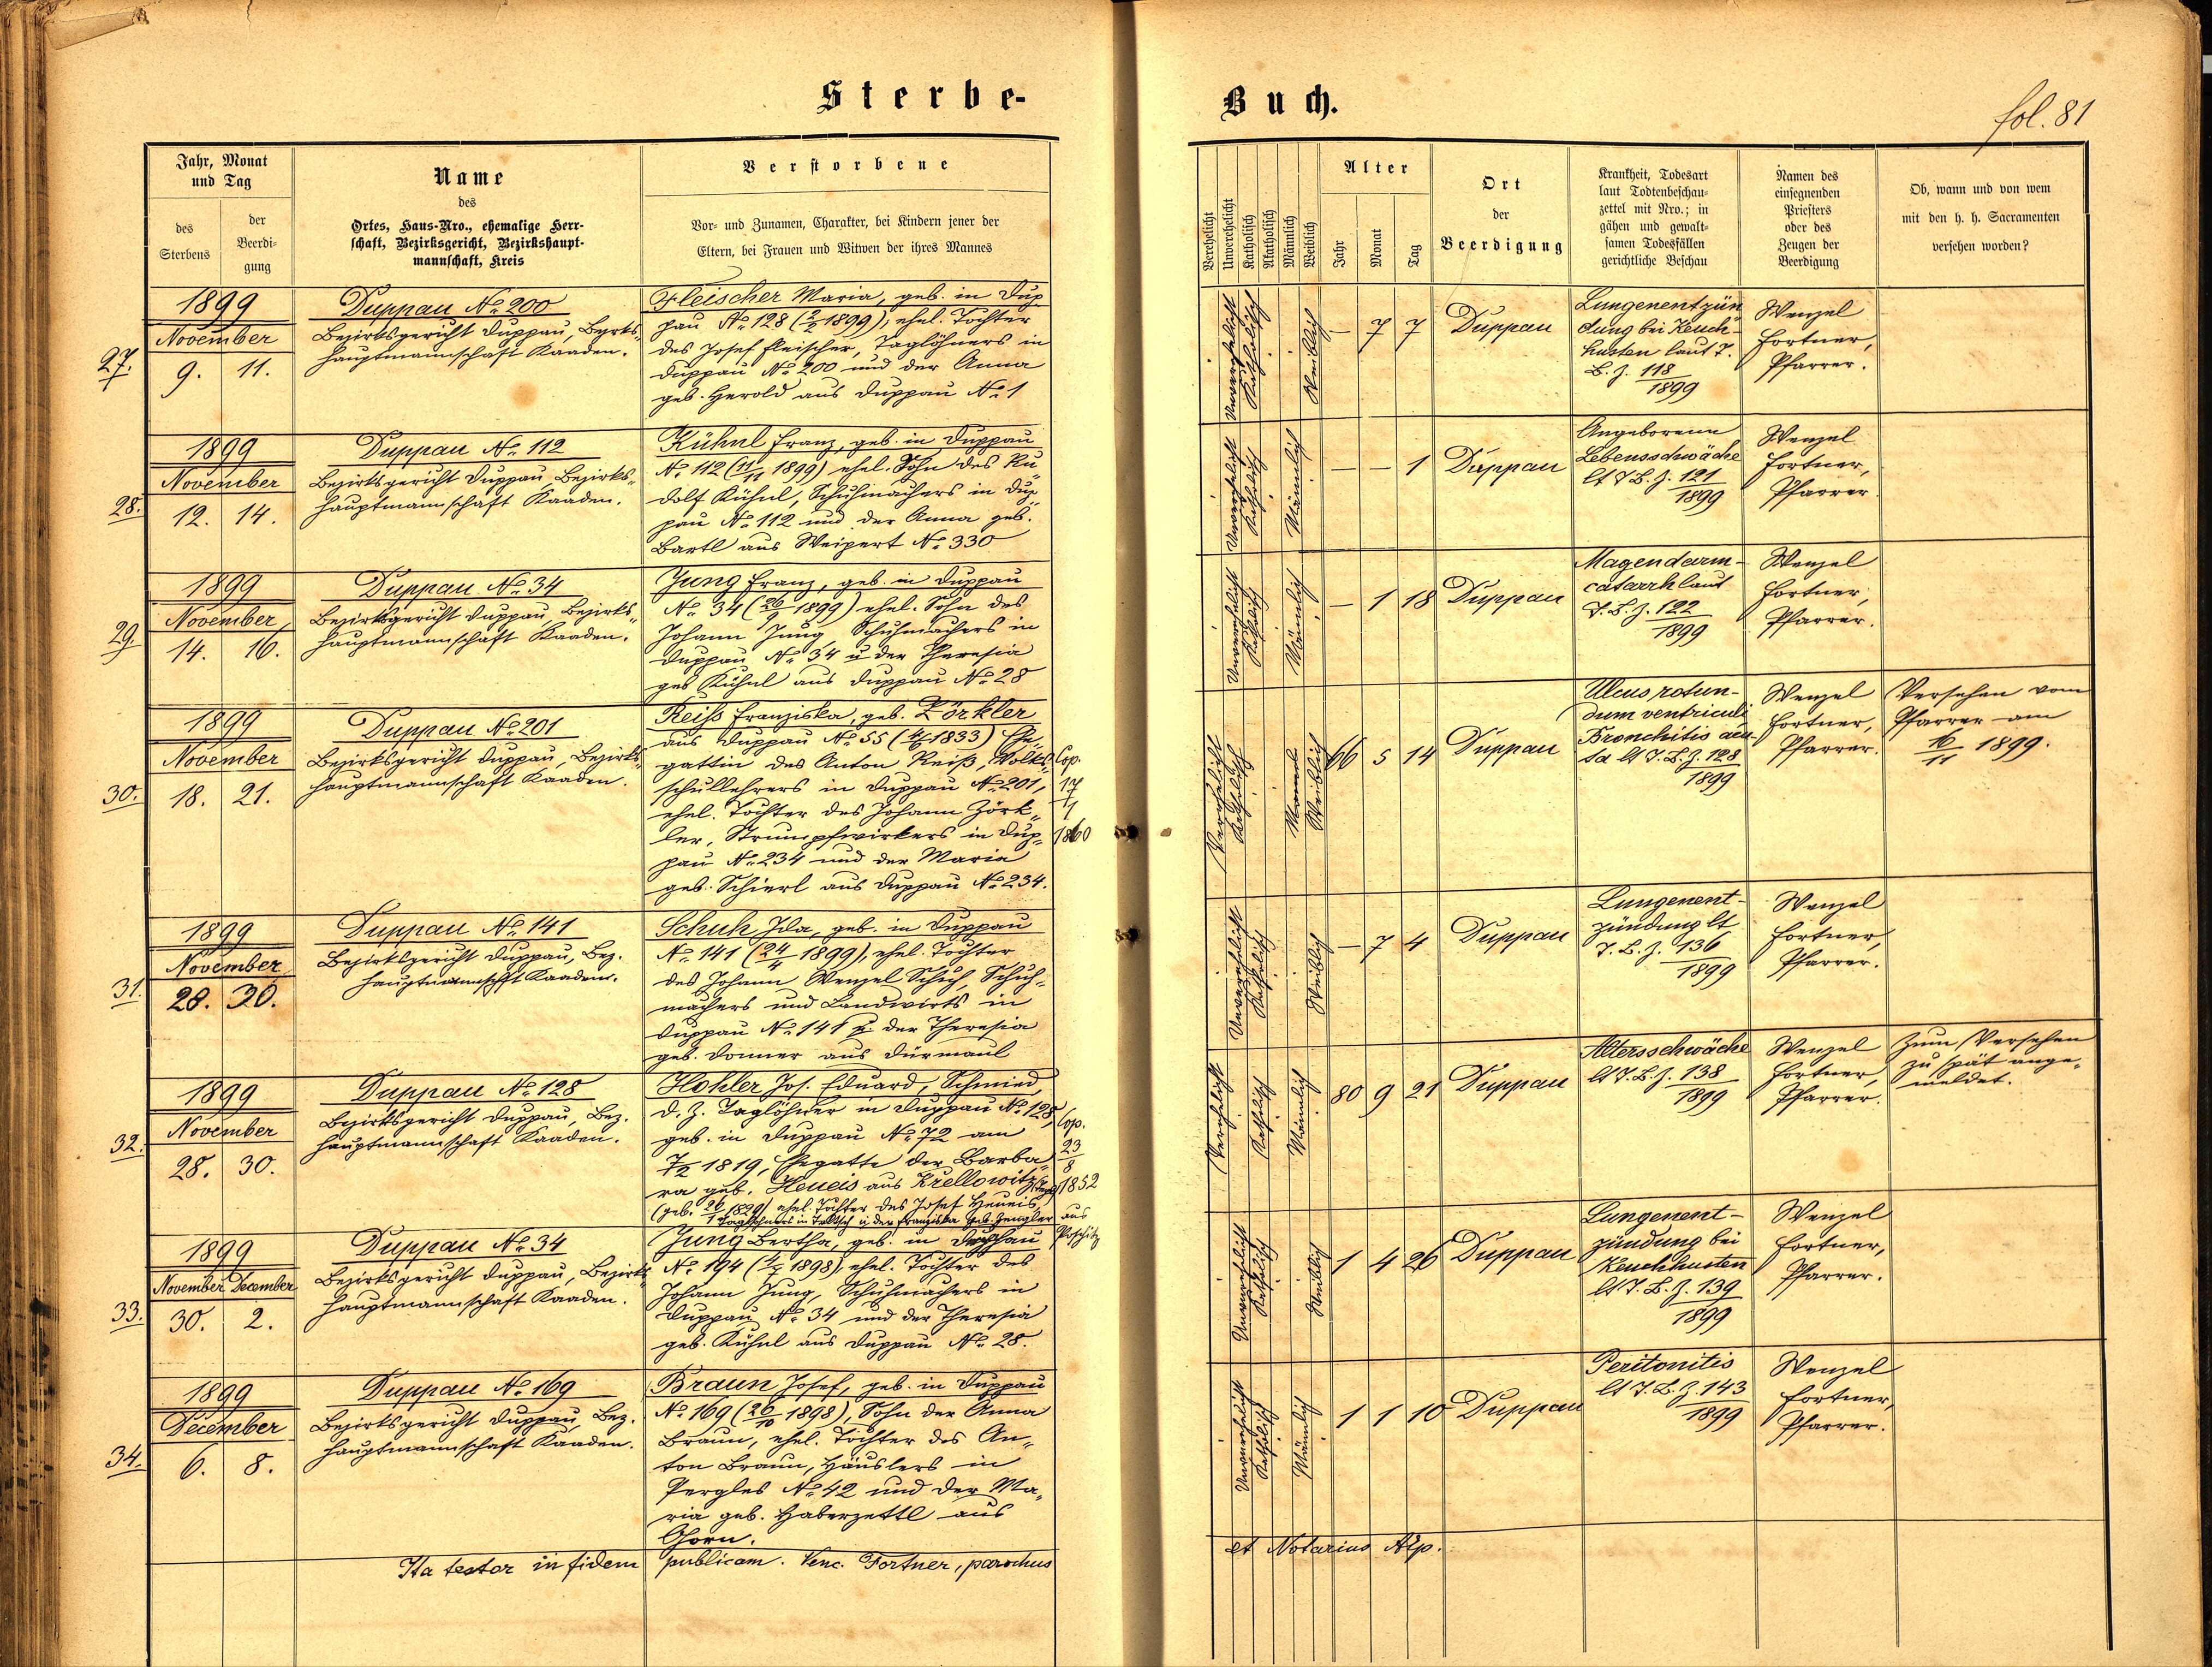 Sterbe-
Buch.
fol. 81
Jahr, Monat
und Tag
des
Sterbens
der
Beerdi-
gung
Name
des
Ortes, Haus-Nro., ehemalige Herr-
schaft, Bezirksgericht, Bezirkshaupt-
mannschaft, Kreis
Verstorbene
Vor- und Zunamen, Charakter, bei Kindern jener der
Eltern, bei Frauen und Witwen der ihres Mannes
Verehelicht
Unverehelicht
Katholisch
Akatholisch
Männlich
Weiblich
Alter
Jahr
Monat
Tag
Ort
der
Beerdigung
Krankheit, Todesart
laut Todtenbeschau-
zettel mit Nro.; in
gähen und gewalt-
samen Todesfällen
gerichtliche Beschau
Namen des
einsegnenden
Priesters
oder des
Zeugen der
Beerdigung
Ob, wann und von wem
mit den h. h. Sacramenten
versehen worden?
27.
1899
November
9. 11.
Duppau No 200
Bezirksgericht Duppau, Bezrks-
hauptmannschaft Kaaden.
Fleischer Maria, geb. in Dup
pau No 128 (2/2 1899), ehel. Tochter
des Josef Fleischer, Taglöhners in
Duppau No 200 und der Anna
geb. Herold aus Duppau No 1
Unverehelicht
Katholisch
Weiblich
— 7 7
Duppau
Lungenentzün
dung bei Keuch-
husten laut T.
B. Z. 118/1899
Wenzel
Fortner,
Pfarrer.
28.
1899
November
12. 14.
Duppau No 112
Bezirksgericht Duppau, Bezirks-
hauptmannschaft Kaaden.
Kühnl Franz, geb. in Duppau
No 112 (11/11 1899) ehel. Sohn des Ru-
dolf Kühnl, Schuhmachers in Dup
pau No 112 und der Anna geb.
Bartl aus Weipert No 330
Unverehelicht
Katholisch
Männlich
— — 1
Duppau
Angeborene
Lebensschwäche
lt T B. Z. 121/1899
Wenzel
Fortner,
Pfarrer.
29
1899
November
14. 16.
Duppau No 34
Bezirksgericht Duppau, Bezirks-
hauptmannschaft Kaaden.
Jung Franz, geb. in Duppau
No 34 (26/9 1899) ehel. Sohn des
Johann Jung, Schuhmachers in
Duppau No 34 u der Theresia
geb Kühnl aus Duppau No 28
Unverehelicht
Katholisch
Männlich
— 1 18
Duppau
Magendarm-
catarrh laut
T. B. Z. 122/1899
Wenzel
Fortner,
Pfarrer.
30.
1899
November
18. 21.
Duppau No 201
Bezirksgericht Duppau, Bezirks-
hauptmannschaft Kaaden.
Reiß Franziska, geb. Zörkler
aus Duppau No 55 (4/6 1833) Ehe-
gattin des Anton Reiß, Volks-
schullehrers in Duppau No 201,
ehel. Tochter des Johann Zörk-
ler, Strumpfwirkers in Dup-
pau No 234 und der Maria
geb. Schierl aus Duppau No 234.
Cop.
17
1860
Verehelicht
Katholisch
Weiblich
66 5 14
Duppau
Ulcus rotun-
dum ventriculi
Bronchitis acu-
ta lt T. B. Z. 128/1899
Wenzel
Fortner,
Pfarrer.
Versehen vom
Pfarrer am
16/11 1899.
31.
1899
November
28. 30.
Duppau No 141
Bezirksgericht Duppau, Bez.
hauptmannschft Kaaden.
Schuh Ida, geb. in Duppau
No 141 (24/4 1899), ehel. Tochter
des Johann Wenzel Schuh, Schuh-
machers und Landwirts in
Duppau No 141 u der Theresia
geb. Donner aus Dürmaul
Unverehelicht
Katholisch
Weiblich
— 7 4
Duppau
Lungenent-
zündung lt
T. B. Z. 136/1899
Wenzel
Fortner,
Pfarrer.
32.
1899
November
28. 30.
Duppau No 128
Bezirksgericht Duppau, Bez.
hauptmannschaft Kaaden.
Hohler Jos. Eduard, Schmied,
d. Z. Taglöhner in Duppau No 128,
geb. in Duppau No 72 am
7/2 1819, Ehegatte der Barba-
ra geb. Heueis aus Krellowitz
(geb. 26/1 1829) ehel. Tochter des Josef Heueis,
Taglöhners in und der Franziska geb. Zengler aus
Poschitz
Cop.
23/8
1852
Verehelicht
Katholisch
Männlich
80 9 21
Duppau
Altersschwäche
lt T. B. Z. 138/1899
Wenzel
Fortner,
Pfarrer.
Zum Versehen
zu spät ange-
meldet.
33.
1899
November December
30. 2.
Duppau No 34
Bezirksgericht Duppau, Bezirks-
hauptmannschaft Kaaden.
Jung Bertha, geb. in Duppau
No 194 (4/7 1898) ehel. Tochter des
Johann Jung, Schuhmachers in
Duppau No 34 und der Theresia
geb. Kühnl aus Duppau No 28.
Unverehelicht
Katholisch
Weiblich
1 4 26
Duppau
Lungenent-
zündung bei
Keuchhusten
lt T. B. Z. 139/1899
Wenzel
Fortner,
Pfarrer.
34.
1899
December
6. 8.
Duppau No 169
Bezirksgericht Duppau, Bez.
hauptmannschaft Kaaden.
Braun Josef, geb. in Duppau
No 169 (26/10 1898), Sohn der Anna
Braun, ehel. Tochter des An-
ton Braun, Häuslers in
Pergles No 42 und der Ma-
ria geb. Haberzettl aus
Horn.
Unverehelicht
Katholisch
Männlich
1 1 10
Duppau
Peritonitis
lt T. B. Z. 143/1899
Wenzel
Fortner,
Pfarrer.
Ita testor in fidem publicam. Venc. Fortner, parochus
et Notarius Ap.